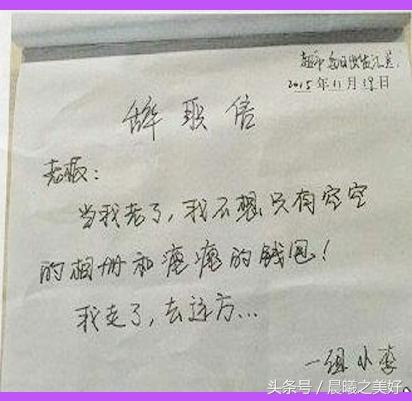 2015年11月19日
辞职信
老
当我老了，我不想只有空空
的相册和瘪瘪的钱包！
我走了，去远方...
一组小李
头条号／晨曦之美好